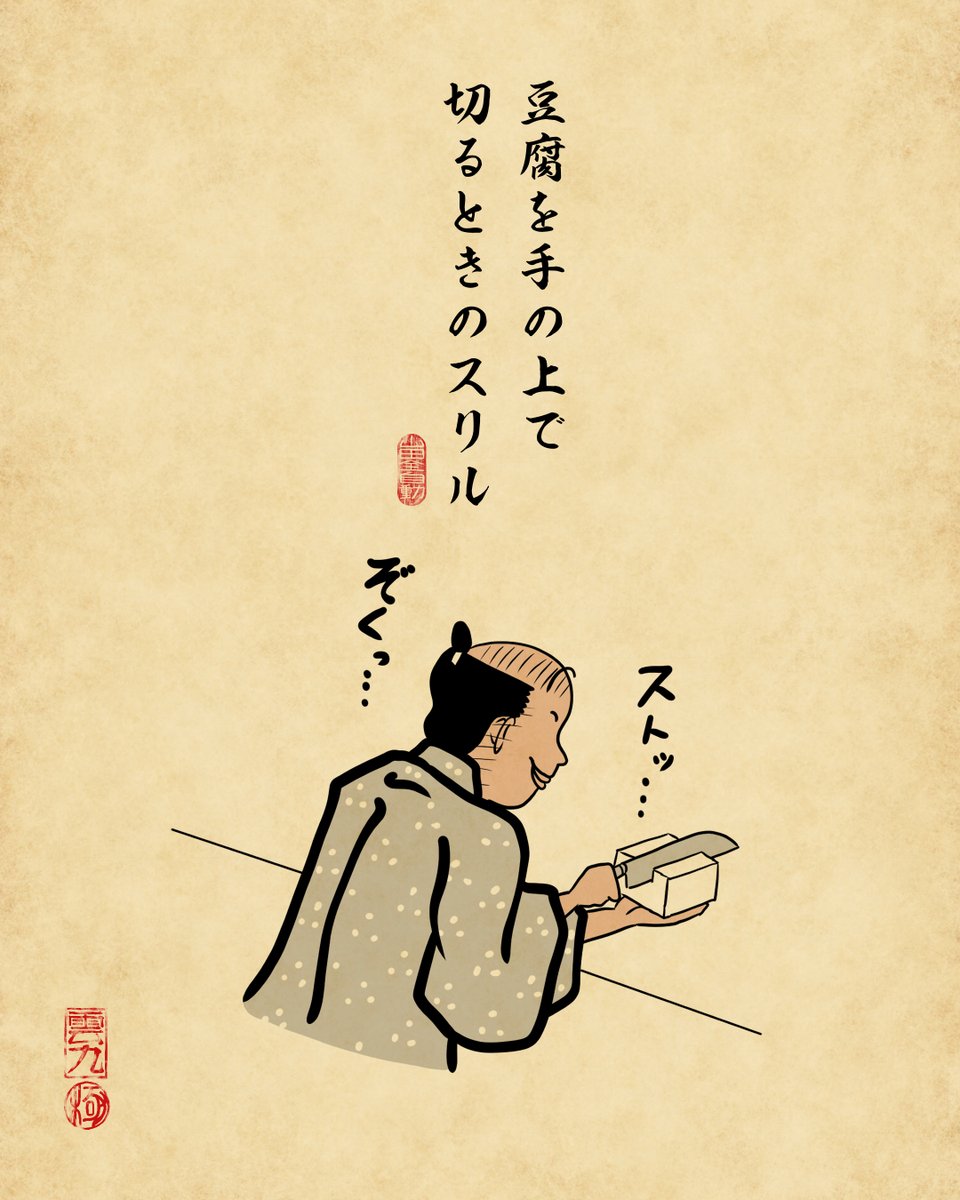 豆腐を手の上で
切るときのスリル
ぞくっ…
ストッ…
雲九